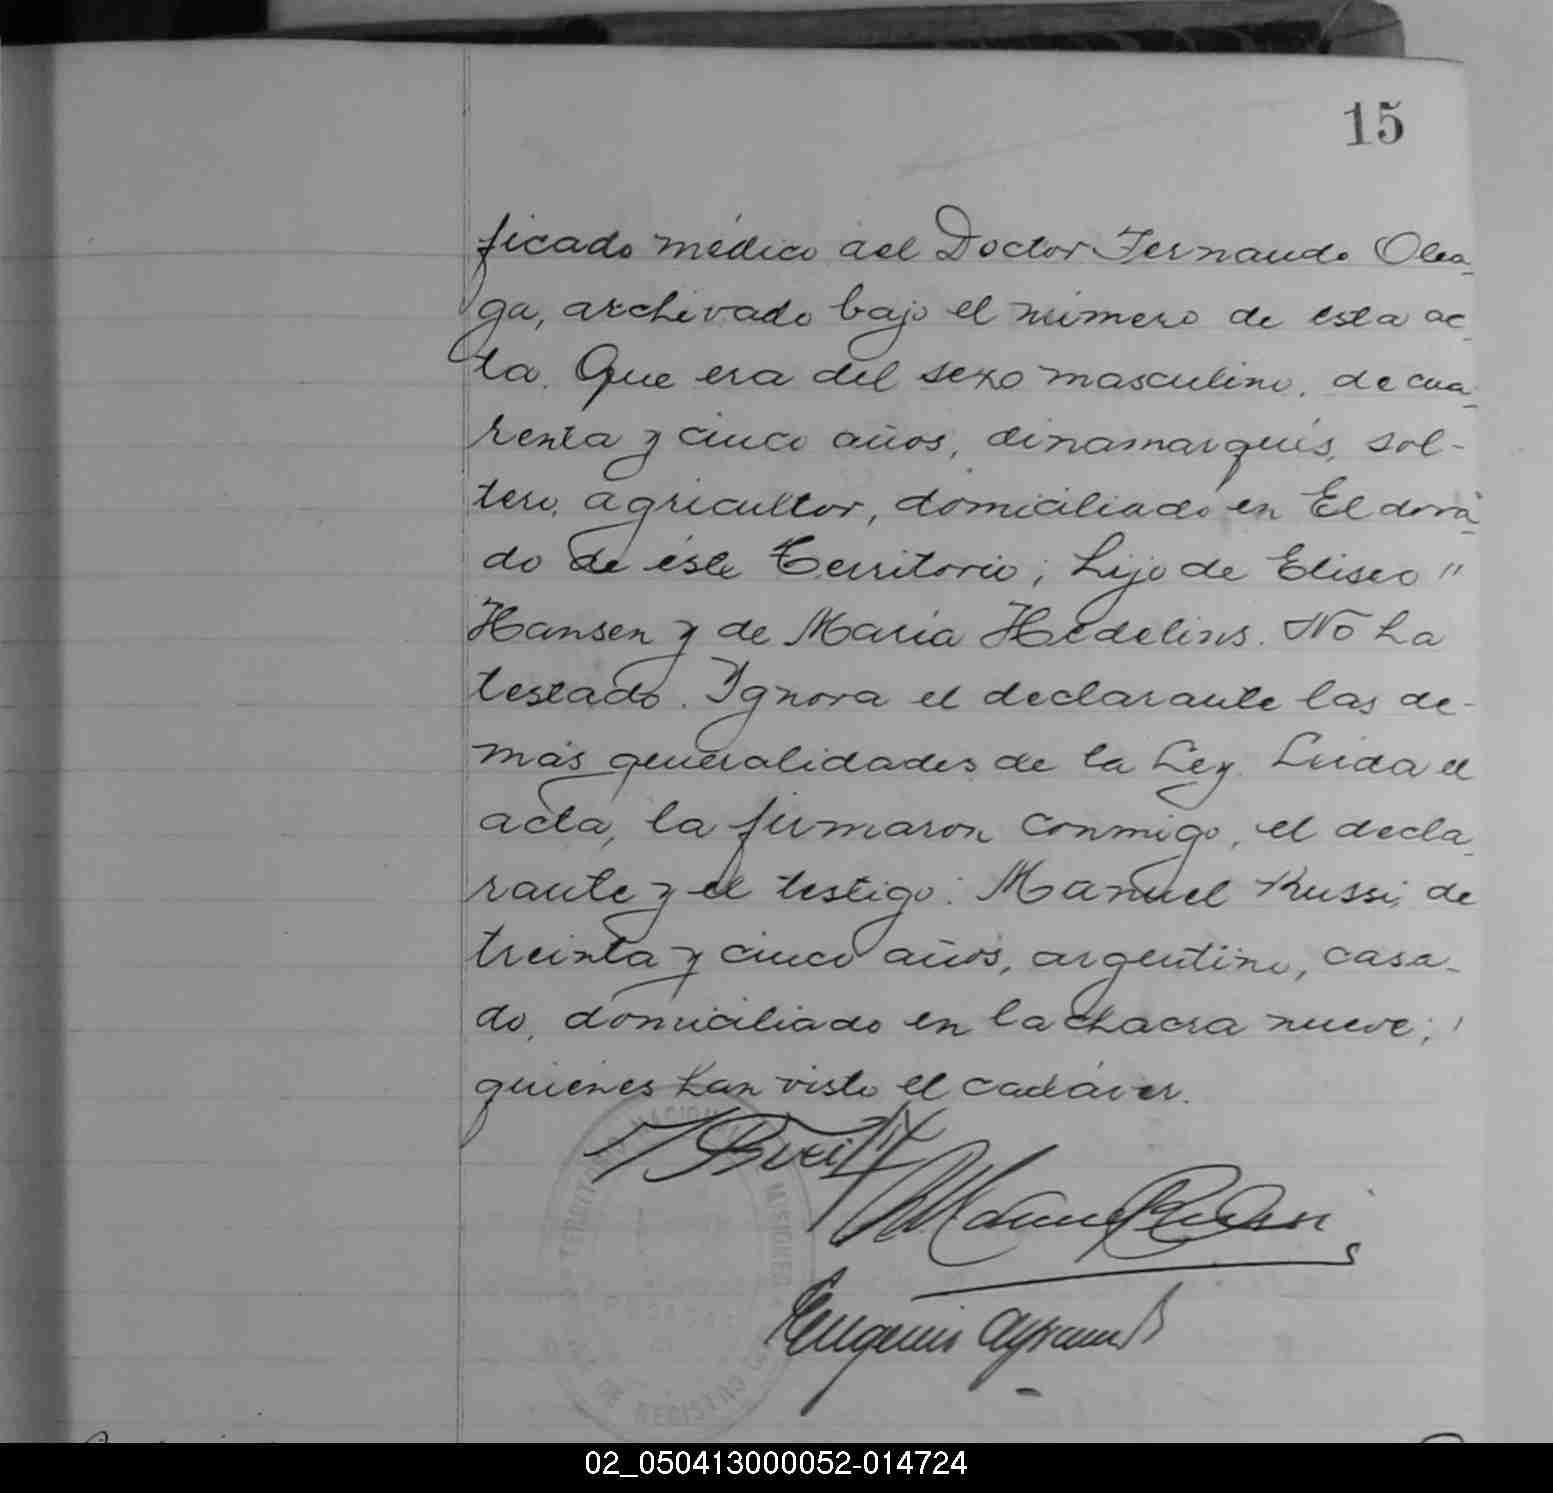 15
ficado médico del Doctor Fernando Olea-
ga, archivado bajo el número de esta ac-
ta. Que era del sexo masculino, de cua-
renta y cinco años, dinamarqués, sol-
tero, agricultor, domiciliado en Eldora-
do de éste Territorio; hijo de Eliseo "
Hansen y de María Hedelins. No ha
testado. Ignora el declarante las de-
más generalidades de la Ley. Leida el
acta, la firmaron conmigo, el decla-
rante y el testigo: Manuel Russi, de
treinta y cinco años, argentino, casa-
do, domiciliado en la chacra nueve;
quienes han visto el cadáver.
Manuel Russi
Eugenio
TERRITORIO NACIONAL MISIONES
POSADAS
REGISTRO
02_050413000052-014724